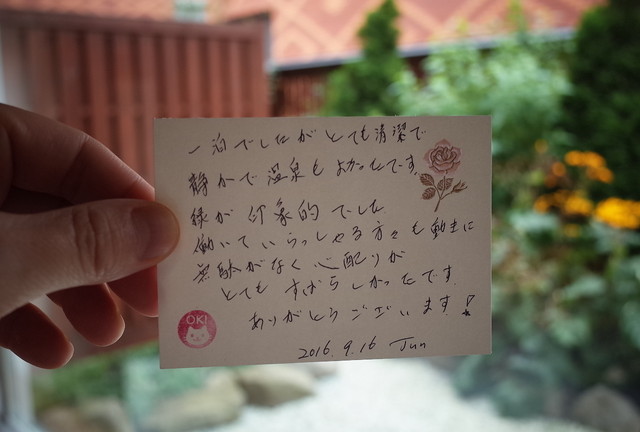 一泊でしたがとても清潔で
静かで温泉もよかったです。
緑が印象的でした
働いていらっしゃる方々も動きに
無駄がなく心配りが
とてもすばらしかったです。
ありがとうございます!
OKI
2016.9.16 Jun